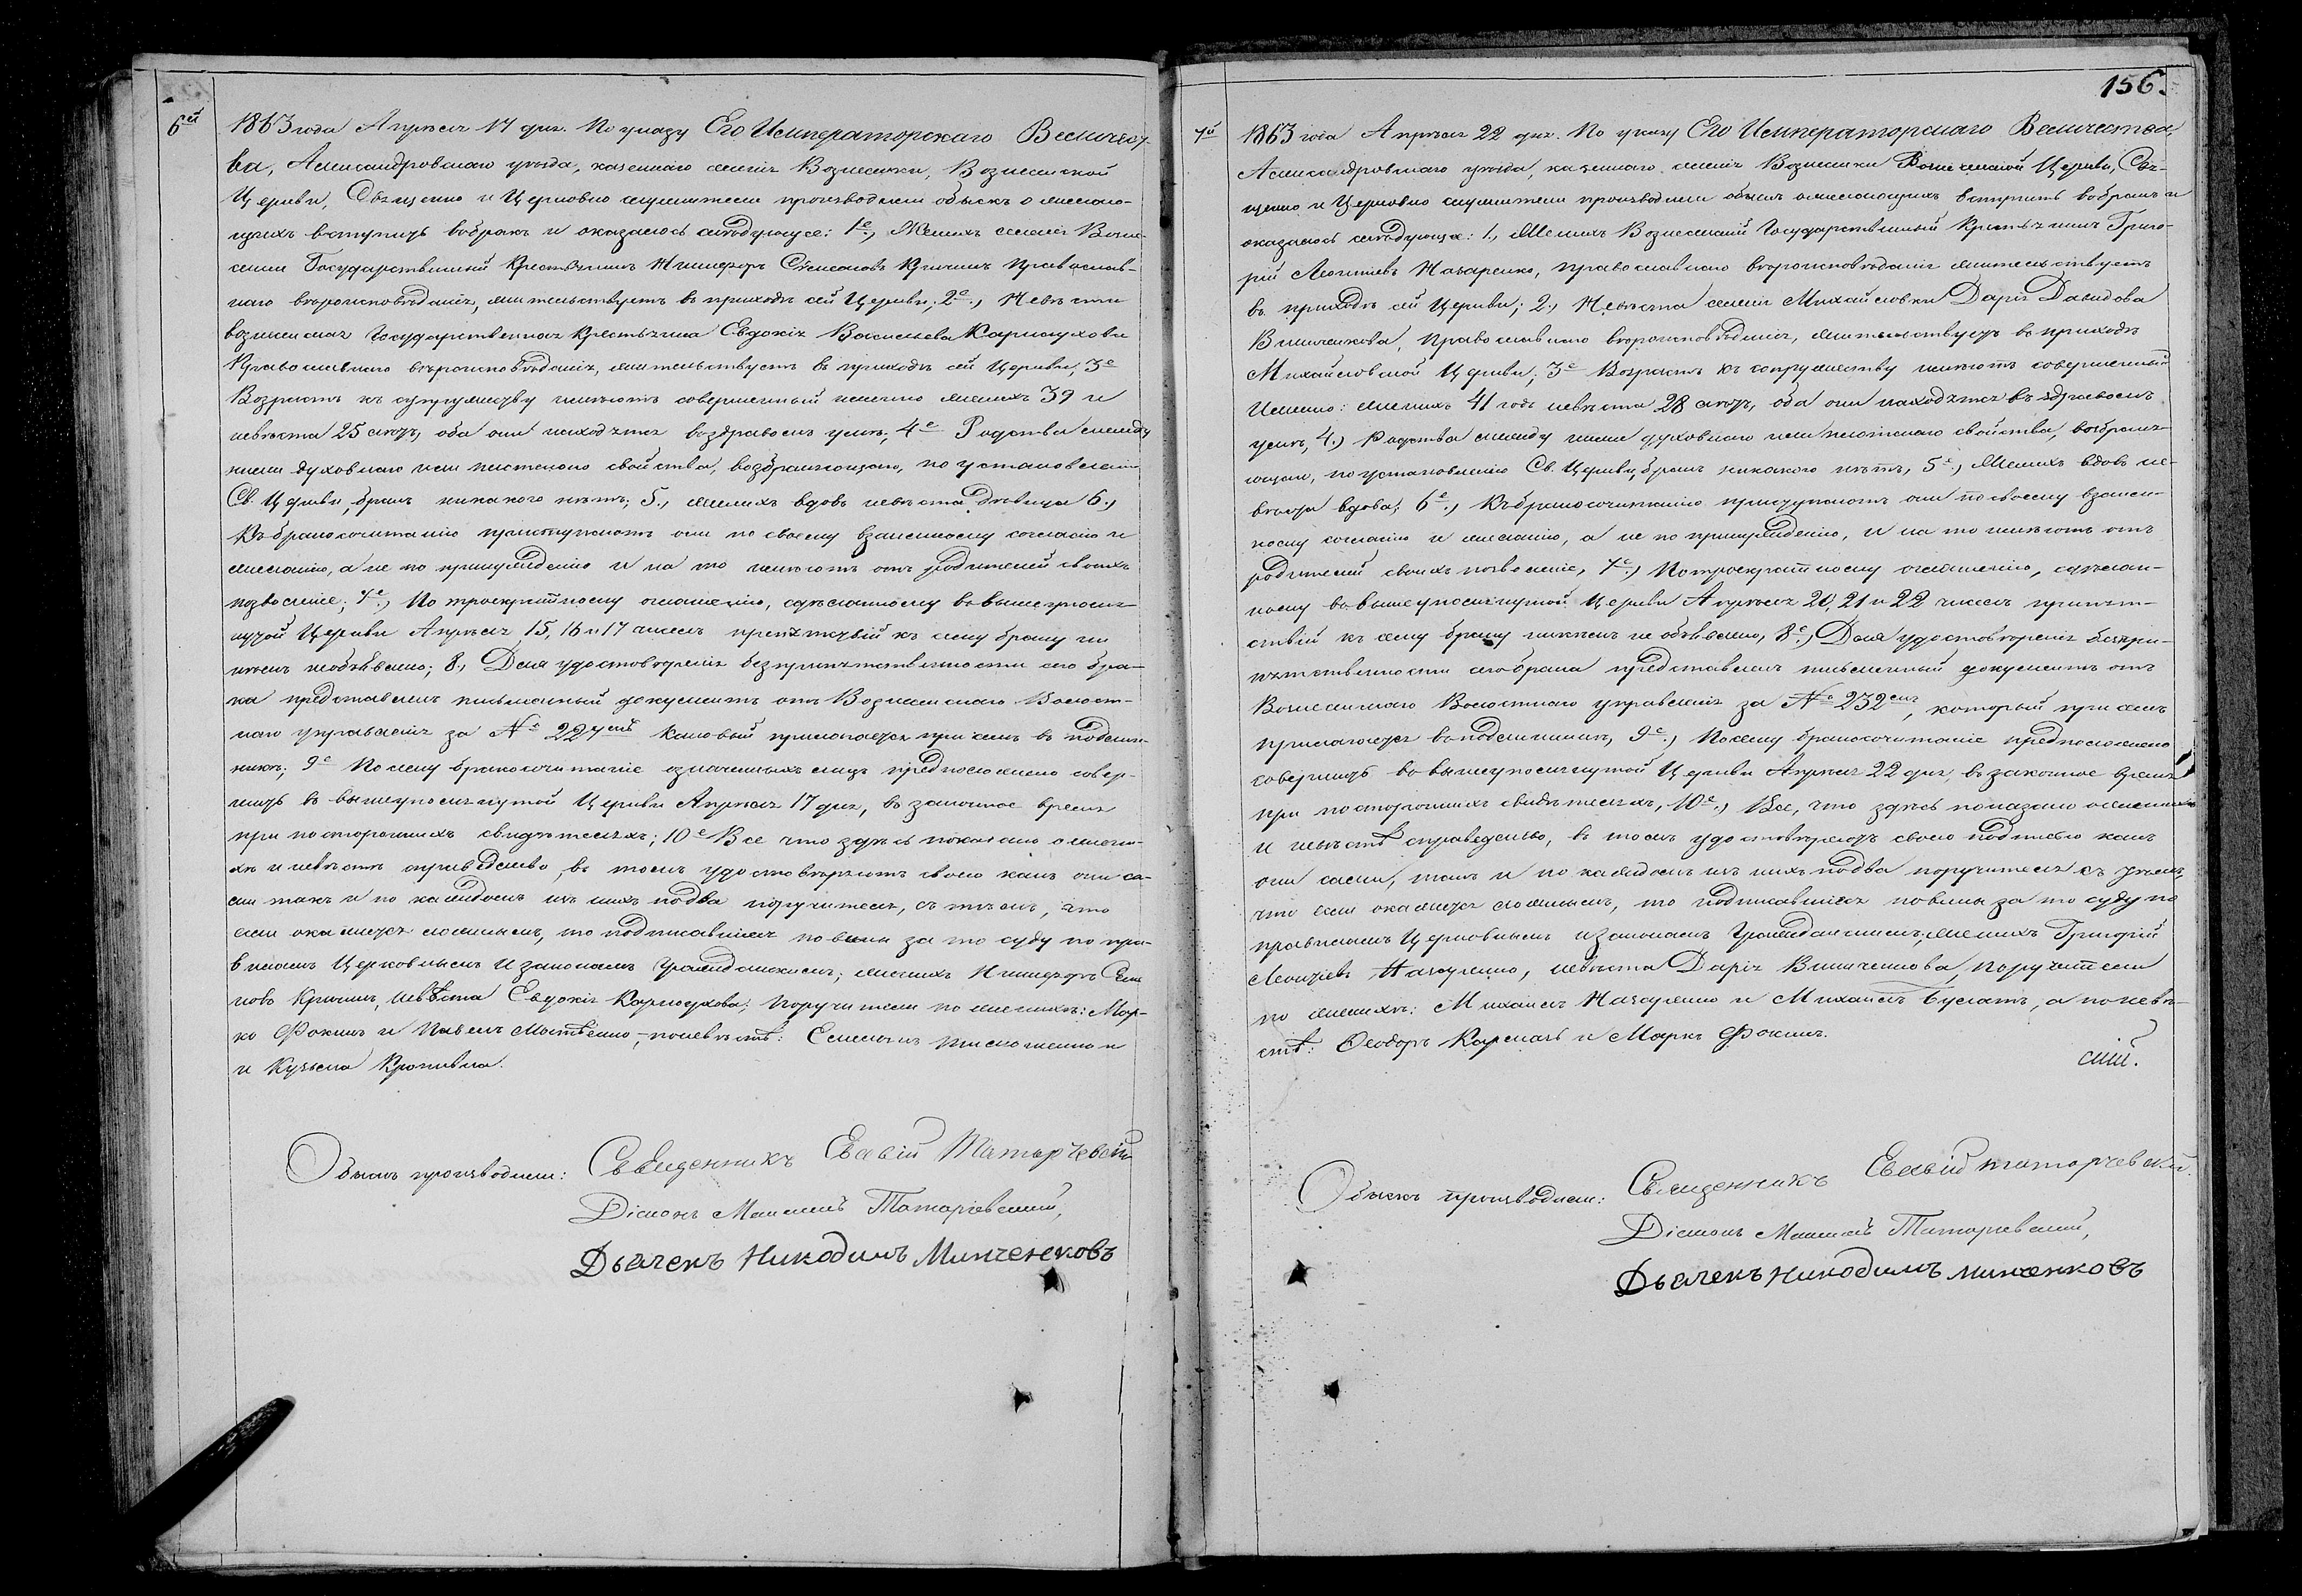 6ей
1863 года Апреля 17 дня. По указу Его Императорскаго Величест-
ва, Александровскаго уезда, казеннаго селенія Вознесенки, Вознесенской
Церкви, Священно и Церковно служители производили обыскъ о желаю-
щихъ вступить въ бракъ и оказалось следующее: 1е., Женихъ селенія Возне-
сенки Государственный Крестьянинъ Никифоръ Семеновъ Кричинъ Православ-
наго вероисповѣданія, жительствуетъ въ приходѣ сей Церкви; 2е., Невѣста
вознесенская Государственная Крестьянка Евдокія Васильева Карнаухова
Православнаго вѣроисповѣданія, жительствуетъ въ приходѣ сей Церкви, 3е
Возрастъ къ супружеству имѣютъ совершенный именно женихъ 39 и
невѣста 25 летъ, оба они находятся въ здравомъ умѣ; 4е Родства между
ними духовнаго или плотскаго свойства, возбраняющаго, по установленію
Св. Церкви, бракъ никакого нѣтъ; 5., женихъ вдовъ невѣста девица 6.,
Къ бракосочитанію приступаютъ они по своему взаимному согласію и
желанію, а не по принужденію и на то имѣютъ отъ родителей своихъ
позволеніе; 7е., По троекратному оглашенію, сдѣланному въ вышеупомя-
нутой Церкви Апреля 15, 16 и 17 чиселъ препятствій къ сему браку ни
кѣмъ необъявлено; 8., Для удостовѣренія безпрепятственности сего бра-
ка представленъ письменный документъ отъ Вознесенскаго Волост-
наго управленія за № 227емъ каковый прилогается при семъ въ подлин-
никѣ; 9е По сему бракосочитаніе означенныхъ лицъ предположено совер-
шить въ вышеупомянутой Церкви Апреля 17 дня, въ законное время
при постороннихъ свидѣтеляхъ; 10е Все что здесь показано о жени-
хѣ и невѣстѣ справедливо, въ томъ удостовѣряютъ своею какъ они са-
ми такъ и по каждомъ изъ нихъ подва поручителя, съ тѣмъ, что
если окажется ложнымъ, то подписавшіеся повины за то суду по пра-
виламъ Церковнымъ и законамъ гражданскимъ; женихъ Никифоръ Семе
новъ Кричинъ, невѣста Евдокія Карнаухова; поручители по женихѣ: Мар-
ко Фокинъ и Павелъ Матвѣенко, поневѣстѣ:
и Кузьма Кропивка.
Обыскъ производили: Священникъ Евсевій Татарчевскій
Діаконъ Татарчевскій,
Дьячекъ Никодимъ Минченковъ
156.
7й
1863 года Апреля 22 дня. По указу Его Императорскаго Величества,
Александровскаго уезда, казеннаго селенія Вознесенки Вознесенской Церкви, Свя-
щенно и Церковно служители производили обыскъ о желающихъ вступить въ бракъ и
оказалось следующее: 1., Женихъ Вознесенскій Государственный Крестьянинъ Григо-
рій Леонтіевъ Назаренко, православнаго вероисповѣданія жительствуетъ
въ приходѣ сей Церкви; 2., Невѣста селенія Михайловки Дарія Давидова
Винниченкова, православнаго вероисповѣданія, жительствуетъ въ приходѣ
Михайловской Церкви; 3е Возрастъ къ сопружеству имѣютъ совершенный
Именно: женихъ 41 годъ невѣста 28 летъ, оба они находятся въ здравомъ
умѣ, 4.) Родства между ними духовнаго или плотскаго свойства, возбраня-
ющаго, по установленію Св. Церкви, бракъ никакого нѣтъ, 5е., Женихъ вдовъ не-
вѣста вдова; 6е., Къ бракосочитанію приступаютъ они по своему взаим-
ному согласію и желанію, а не по принужденію, и на то имѣютъ отъ
родителей своихъ позволеніе, 7е., По троекратному оглашенію, сдѣлан-
ному въ вышеупомянутой Церкви Апреля 20, 21 и 22 чиселъ препят-
ствій къ сему браку никѣмъ не объявлено, 8е., Для удостовѣренія безпре-
пятственности сего брака представленъ письменный документъ отъ
Вознесенскаго Волостнаго управленія за № 232емъ, который при семъ
прилагается въ подлинникѣ, 9е., По сему бракосочитаніе предположено
совершить въ вышеупомянутой Церкви Апреля 22 дня, въ законное время
при постороннихъ свидѣтеляхъ, 10е., Все, что здѣсь показано о женихѣ
и невѣстѣ справедливо, въ томъ удостовѣряютъ своею подписью какъ
они сами, такъ и по каждомъ изъ нихъ подва поручителя съ тѣмъ,
что если окажется ложнымъ, то подписавшіеся повины за то суду по
правиламъ Церковнымъ и законамъ гражданскимъ; женихъ Григорій
Леонтіевъ Назаренко, невѣста Дарія Винниченкова, поручители
по женихѣ: Михаилъ Назаренко и Михаилъ Булатъ, а поневѣ-
стѣ: Феодоръ и Марко Фокинъ.
Обыскъ производили: Священникъ Евсевій Татарчевскій.
Діаконъ Татарчевскій,
Дьячекъ Никодимъ Минченковъ